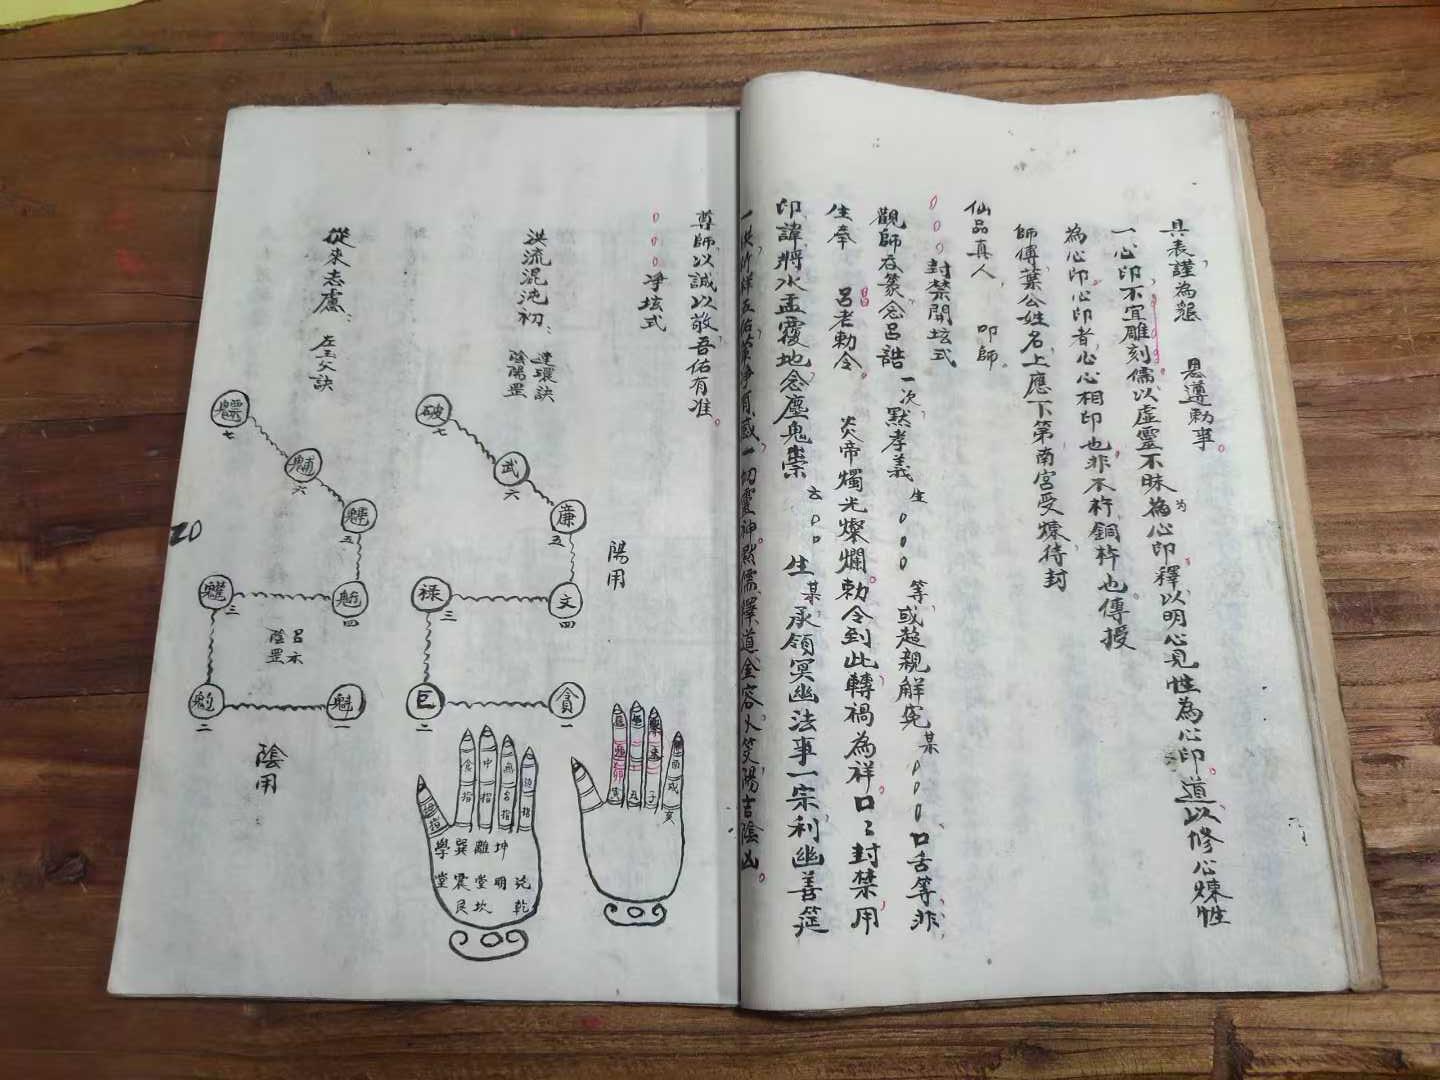 具表謹為懇　恩遵勅事。
一心印不宜雕刻儒以虛靈不昧為心印釋以明心見性為心印。道以修心煉性
為心印心印者心心相印也。非木杵銅杵也。傳授
師傅葉公姓名上應下第南宮受煉待封
仙品真人　叩師。
封禁開坛式
觀師存篆念呂誥一次默孝義生　等或超親解冤某　口舌等非
生奉　呂老勅令。　炎帝燭光燦爛。勅令到此轉禍為祥。口〻封禁用
印諱將水盂覆地念塵鬼祟　玄　生某承領冥幽法事一宗利幽善筵
一切靈神。點儒釋道金容火笑陽吉陰凶。
尊師以誠以敬吾佑有准。
凈坛式
陽用
洪流混沌初：
連環訣
陰陽罡
破七
武六
廉五
文四
禄三
巨二
貪一
從來志慮：
左玉父訣
七
輔六
五
四
三
二
魁一
呂示
陰罡
陰用
20
食指
中指
無名指
學
巽
離
坤
堂
震
明
堂
兌
艮
坎
乾